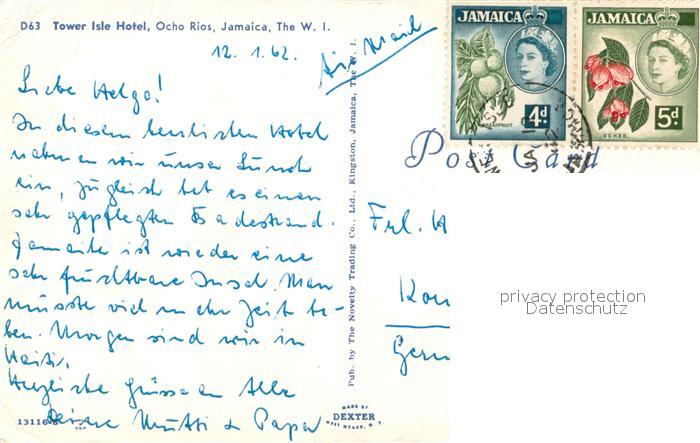 D63 Tower Isle Hotel, Ocho Rios, Jamaica, The W. I.
12.1.62.
Air Mail
Liebe Helga!
In diesem herrlichen Hotel
nehmen wir unser Lunch
ein, zugleich hat es einen
sehr gepflegten Badestrand.
Jamaika ist wieder eine
sehr fruchtbare Insel. Man
müsste viel mehr Zeit ha-
ben. Morgen sind wir in
Haiti.
Herzliche Grüsse an Alle
Deine Mutti & Papa
Pub. by The Novelty Trading Co., Ltd., Kingston, Jamaica, The W. I.
MADE BY
DEXTER
WEST NYACK, N. Y.
JAMAICA
BREADFRUIT
4d
JAMAICA
ACKEE
5d
Post Card
Frl. H
Ger
privacy protection
Datenschutz